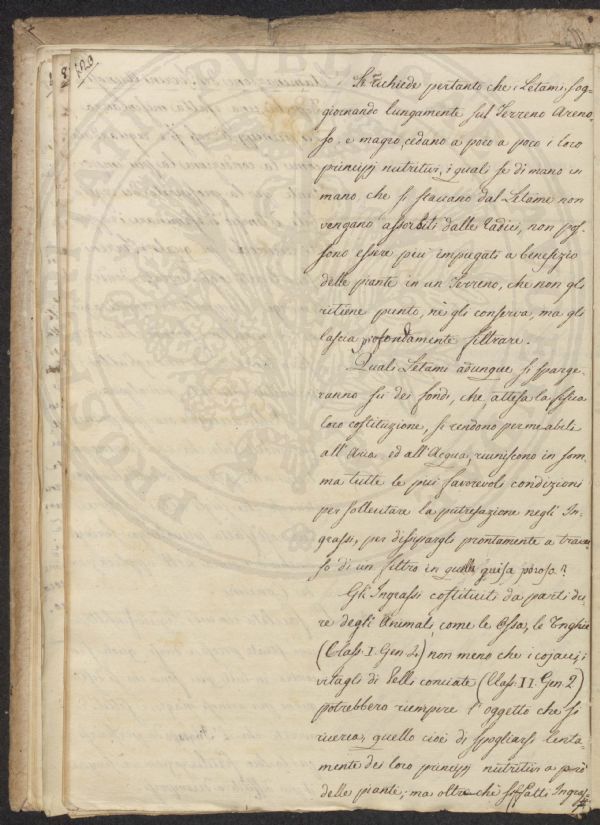 Si richiede pertanto che i Letami, sog-
giornando lungamente sul Terreno Areno-
so, e magro, cedano a poco a poco i loro
principj nutritivi, i quali se di mano in
mano, che si staccano dal Letame non
vengano assorbiti dalle radici, non pos-
sono essere più impiegati a benefizio
delle piante in un Terreno, che non gli
ritiene punto, nè gli conserva, ma gli
lascia profondamente filtrare.
Quali Letami adunque si sparge-
ranno sù dei fondi, che, attesa la fisica
loro costituzione, si rendono permeabili
all'Aria, ed all'Acqua, riuniscono in som-
ma tutte le più favorevoli condizioni
per sollecitare la putrefazione negli In-
grassi, per dissipargli prontamente a traver-
so di un filtro in quella guisa poroso?
Gli Ingrassi costituiti da parti du-
re degli Animali, come le Ossa, le Unghie
(Class. I. Gen. 2.) non meno che i cojacci, i
ritagli di Pelli conciate (Class. II. Gen. 2)
potrebbero riempire l'oggetto che si
ricerca, quello cioè di spogliarsi lenta-
mente dei loro principj nutritivi a prò
delle piante; ma oltre che siffatti Ingras-